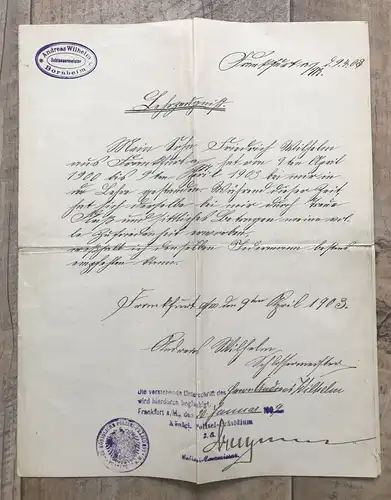 Andreas Wilhelm
Schlossermeister
Bornheim
Frankfurt a/M. d. 9.4.03
Lehrzeugniss
Mein Sohn Friedrich Wilhelm
aus Frankfurt a/ hat vom 9ten April
1900 bis 9ten April 1903 bei mir in
der Lehre gestanden. Während dieser Zeit
hat sich derselbe bei mir durch Treue
Fleiß und sittliches Betragen meine vol-
le Zufriedenheit erworben,
weßhalb ich denselben Jedermann bestens
empfehlen kann.
Frankfurt a/M den 9ten April 1903.
Andreas Wilhelm
Schlossermeister
Die vorstehende Unterschrift des Herrn Andreas Wilhelm
wird hierdurch beglaubigt.
Frankfurt a/M., den Januar
Königl. Polizei-Präsidium